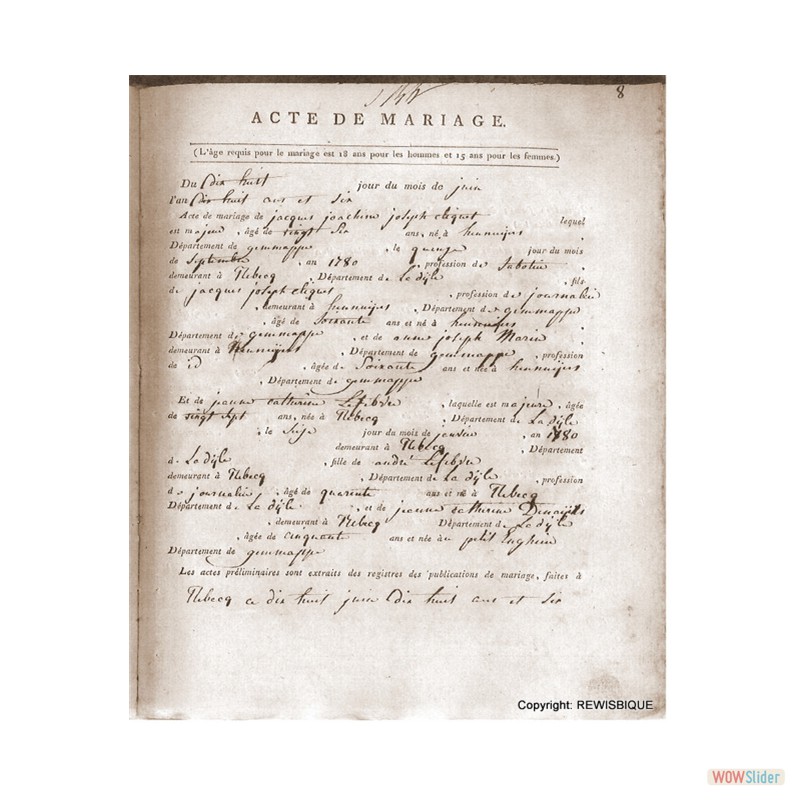 8
ACTE DE MARIAGE.
(L'âge requis pour le mariage est 18 ans pour les hommes et 15 ans pour les femmes.)
Du dix huit jour du mois de juin
l'an dix huit ans et six
Acte de mariage de jacques joachim joseph cliquet lequel
est majeur, âgé de vingt six ans, né à hennuijes
Département de gemmappe, le quenze jour du mois
de Septembre, an 1780, profession de Sabotie
demeurant à Rebecq, Département de La dijle, fils
de jacques joseph cliques, profession de journalie
, demeurant à hennuijes, Département de gemmappe
, âgé de Soixante ans et né à hennuijes
Département de gemmappe, et de anne joseph Marie
demeurant à hennuijes, Département de gemmappe, profession
de id, âgée de Soixante ans et née à hennuijes
, Département de gemmappe
Et de jeanne catherine Lefebvre, laquelle est majeure, âgée
de vingt sept ans, née à Rebecq, Département de La dijle
, le Seije jour du mois de janvier, an 1780
demeurant à Rebecq, Département
de La dijle, fille de andré Lefebvre
demeurant à Rebecq, Département de La dijle, profession
de journalie, âgé de quarente ans et né à Rebecq
Département de La dijle, et de jeanne catherine
, demeurant à Rebecq Département de La dijle
, âgée de cinquante ans et née à petit Enghien
Département de gemmappe
Les actes préliminaires sont extraits des registres des publications de mariage, faites à
Rebecq ce dix huit juin dix huit ans et six
Copyright: REWISBIQUE
WOWSlider